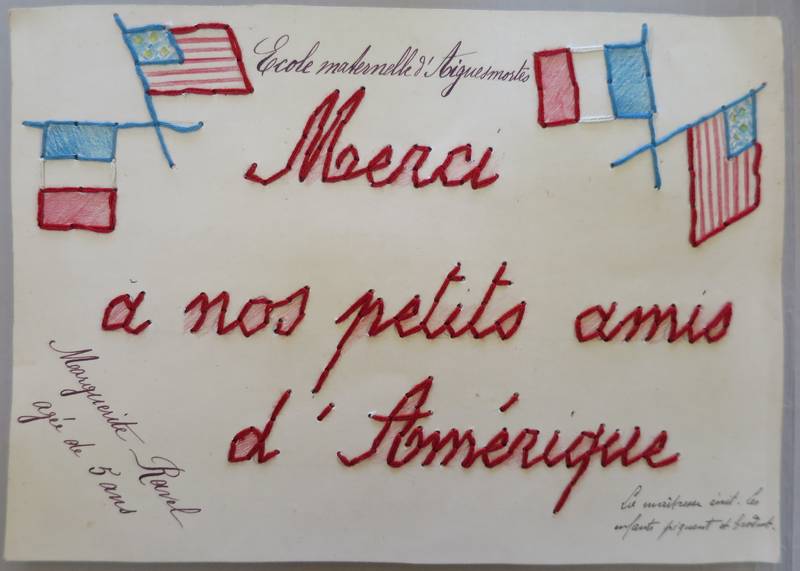 Ecole maternelle d'Aiguesmortes
Merci
à nos petits amis
d'Amérique
Marguerite Ravel
agée de 5 ans
La maîtresse écrit. Les
enfants piquent et brodent.